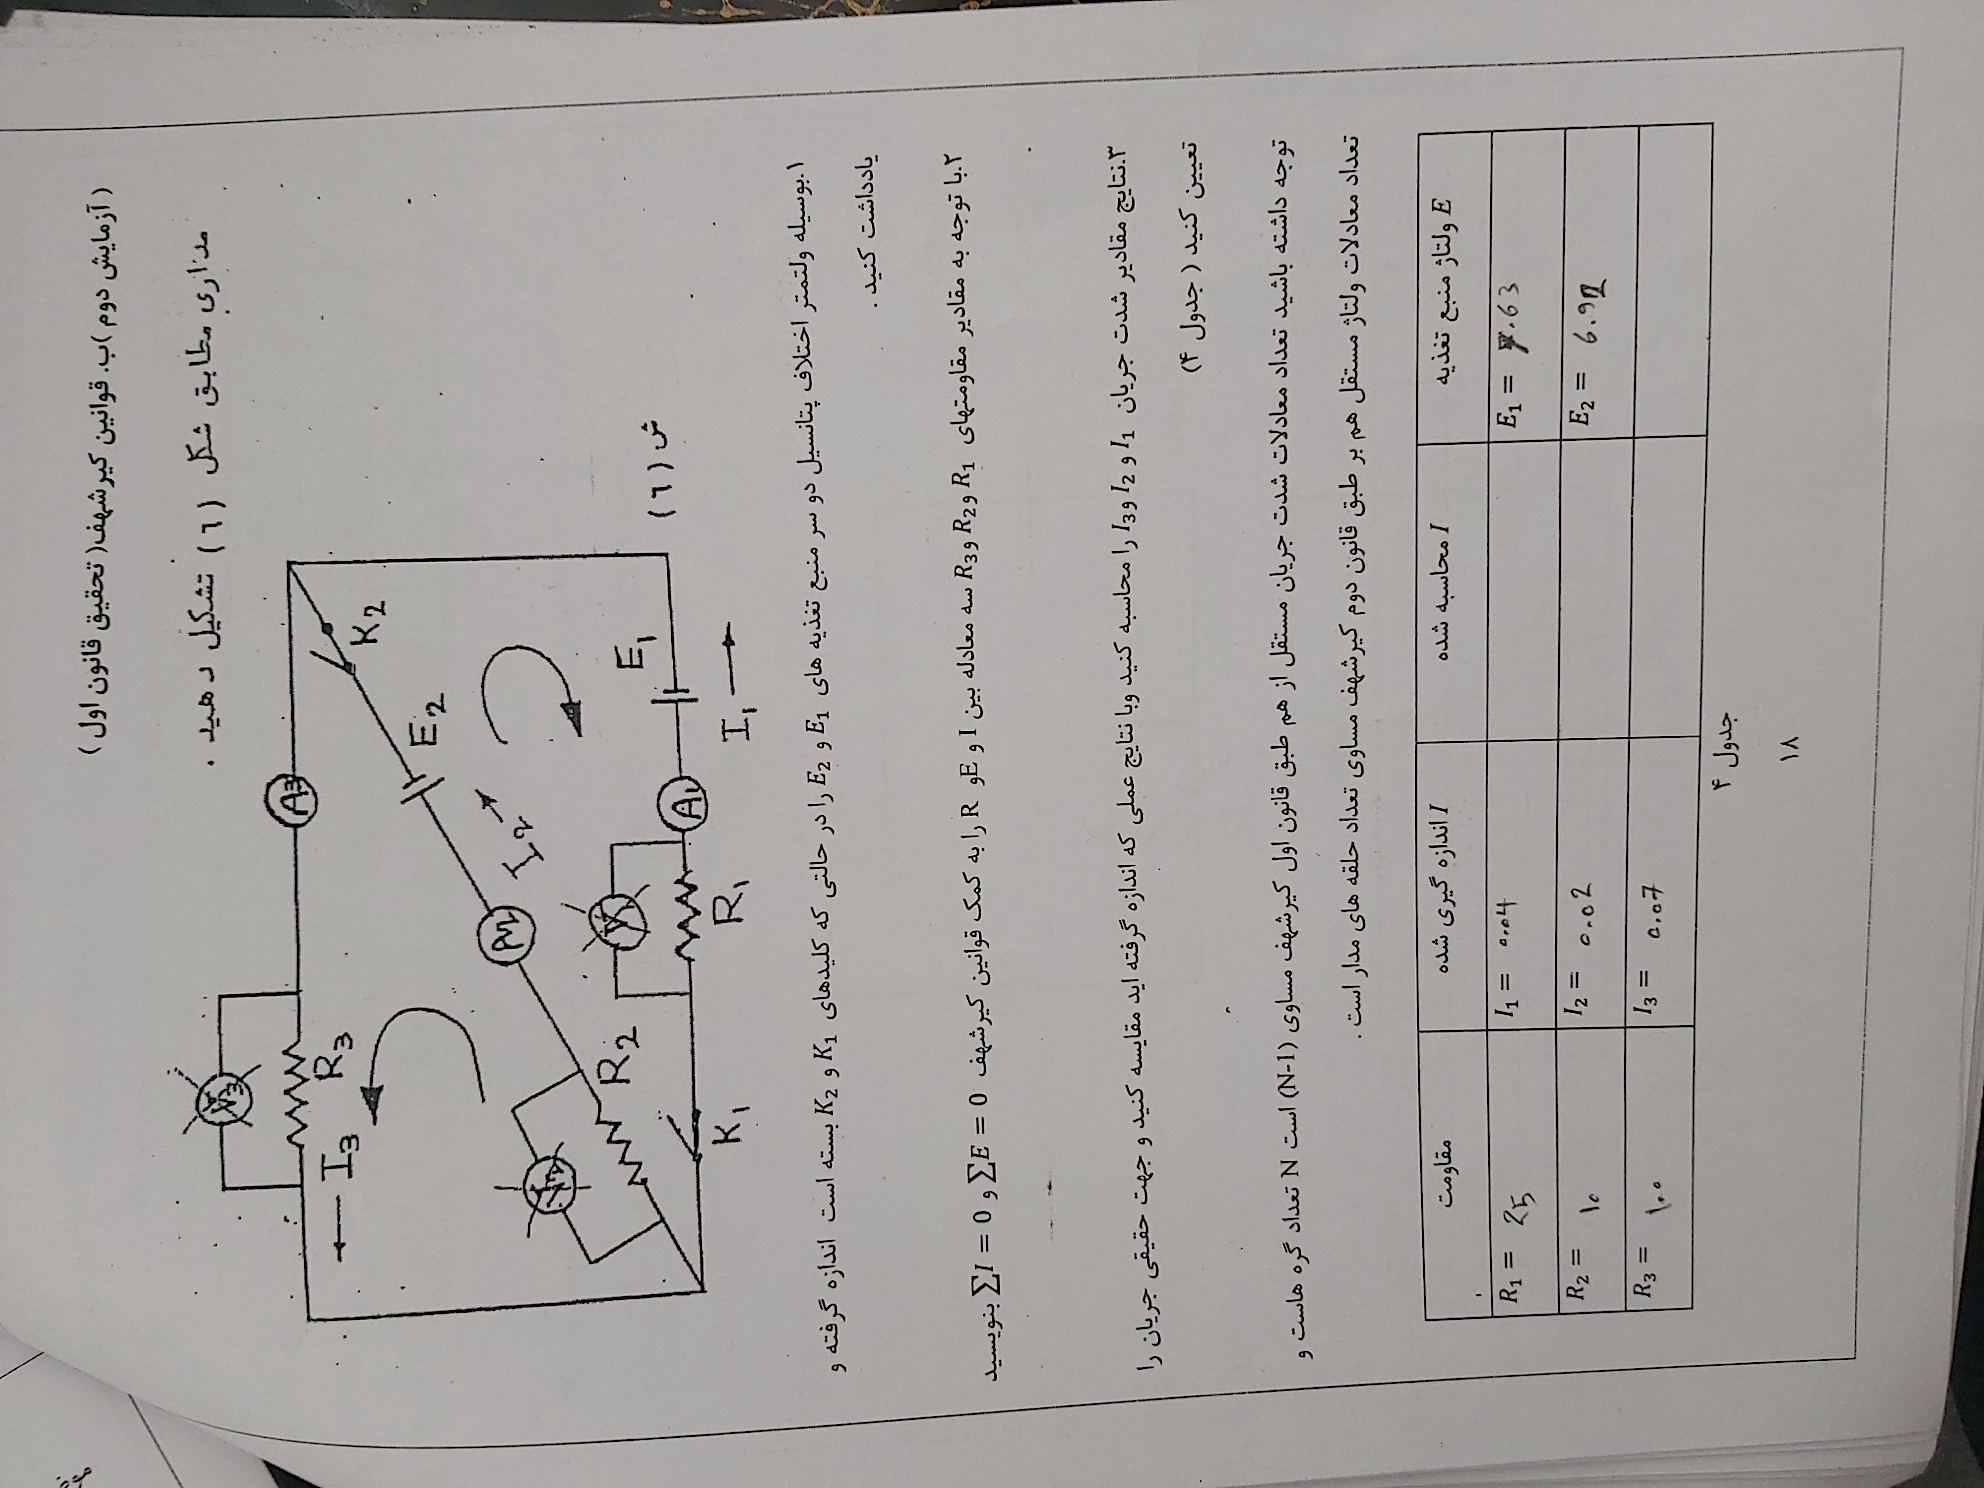 (آزمایش دوم )ب. قوانین کیرشهف( تحقیق قانون اول )
مداری مطابق شکل (٦) تشکیل دهید .
A3
V3
R3
I3
K2
E2
I2
R2
E1
I1
A1
R1
K1
ش (٦)
۱.بوسیله ولتمتر اختلاف پتانسیل دو سر منبع تغذیه های E1 و E2 را در حالتی که کلیدهای K1 و K2 بسته است اندازه گرفته و
یادداشت کنید .
۲.با توجه به مقادیر مقاومتهای R1 و R2 و R3 سه معادله بین I و E و R را به کمک قوانین کیرشهف ∑I = 0 و ∑E = 0 بنویسید
۳.نتایج مقادیر شدت جریان I1 و I2 و I3 را محاسبه کنید وبا نتایج عملی که اندازه گرفته اید مقایسه کنید و جهت حقیقی جریان را
تعیین کنید ( جدول ۴)
توجه داشته باشید تعداد معادلات شدت جریان مستقل از هم طبق قانون اول کیرشهف مساوی (N-1) است N تعداد گره هاست و
تعداد معادلات ولتاژ مستقل هم بر طبق قانون دوم کیرشهف مساوی تعداد حلقه های مدار است .
مقاومت I اندازه گیری شده I محاسبه شده E ولتاژ منبع تغذیه
R1 = 25 I1 = 0.04 E1 =
R2 = 10 I2 = 0.02 E2 =
R3 = 100 I3 = 0.07
جدول ۴
۱۸